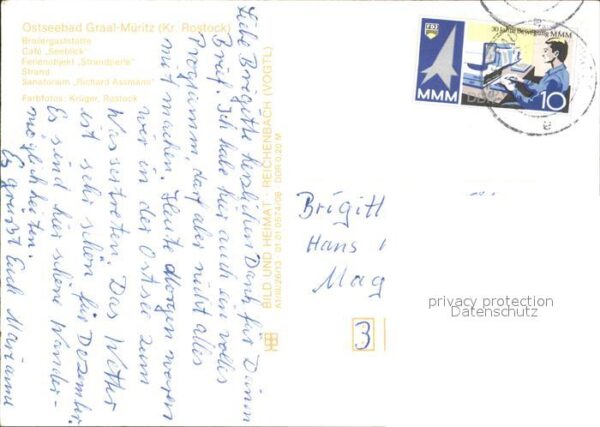 Ostseebad Graal-Müritz (Kr. Rostock)
Broilergaststätte
Café „Seeblick"
Ferienobjekt „Strandperle"
Strand
Sanatorium „Richard Assmann"
Farbfotos: Krüger, Rostock
Liebe Brigitte herzlichen Dank für Deinen
Brief. Ich habe hier auch ein volles
Programm, darf aber nicht alles
mitmachen. Heute Morgen waren
wir in der Ostsee zum
Wassertreten. Das Wetter
ist sehr schön für Dezember.
Es sind hier schöne Wander-
möglichkeiten.
Es grüsst Euch Marianne
BILD UND HEIMAT · REICHENBACH (VOGTL)
A1/III/26/13 01 01 0574/08 DDR 0,20 M
FDJ
30 Jahre Bewegung MMM
MMM
DDR
10
Brigitt
Hans
Mag
3
privacy protection
Datenschutz